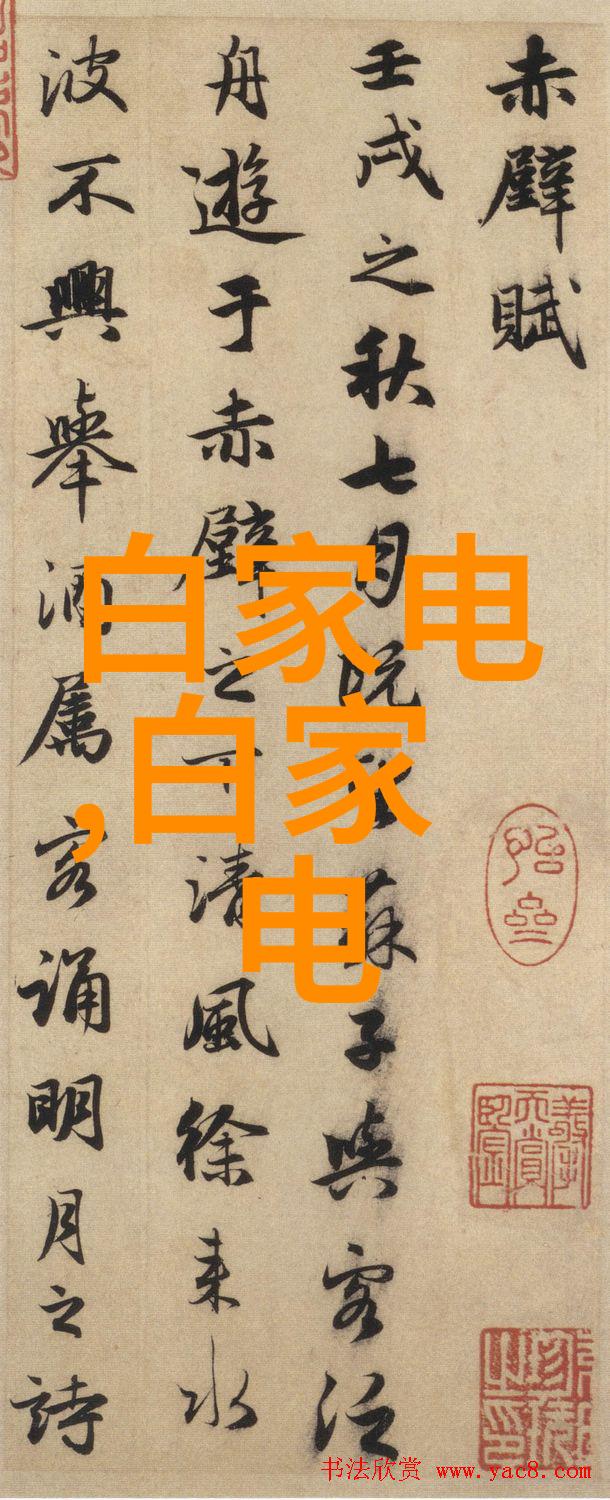 赤壁賦
壬戌之秋七月既望蘇子與客泛
舟遊于赤壁之下清風徐来水
波不興舉酒属客誦明月之詩
白家电
,白家
电
书法欣赏 www.yac8.com